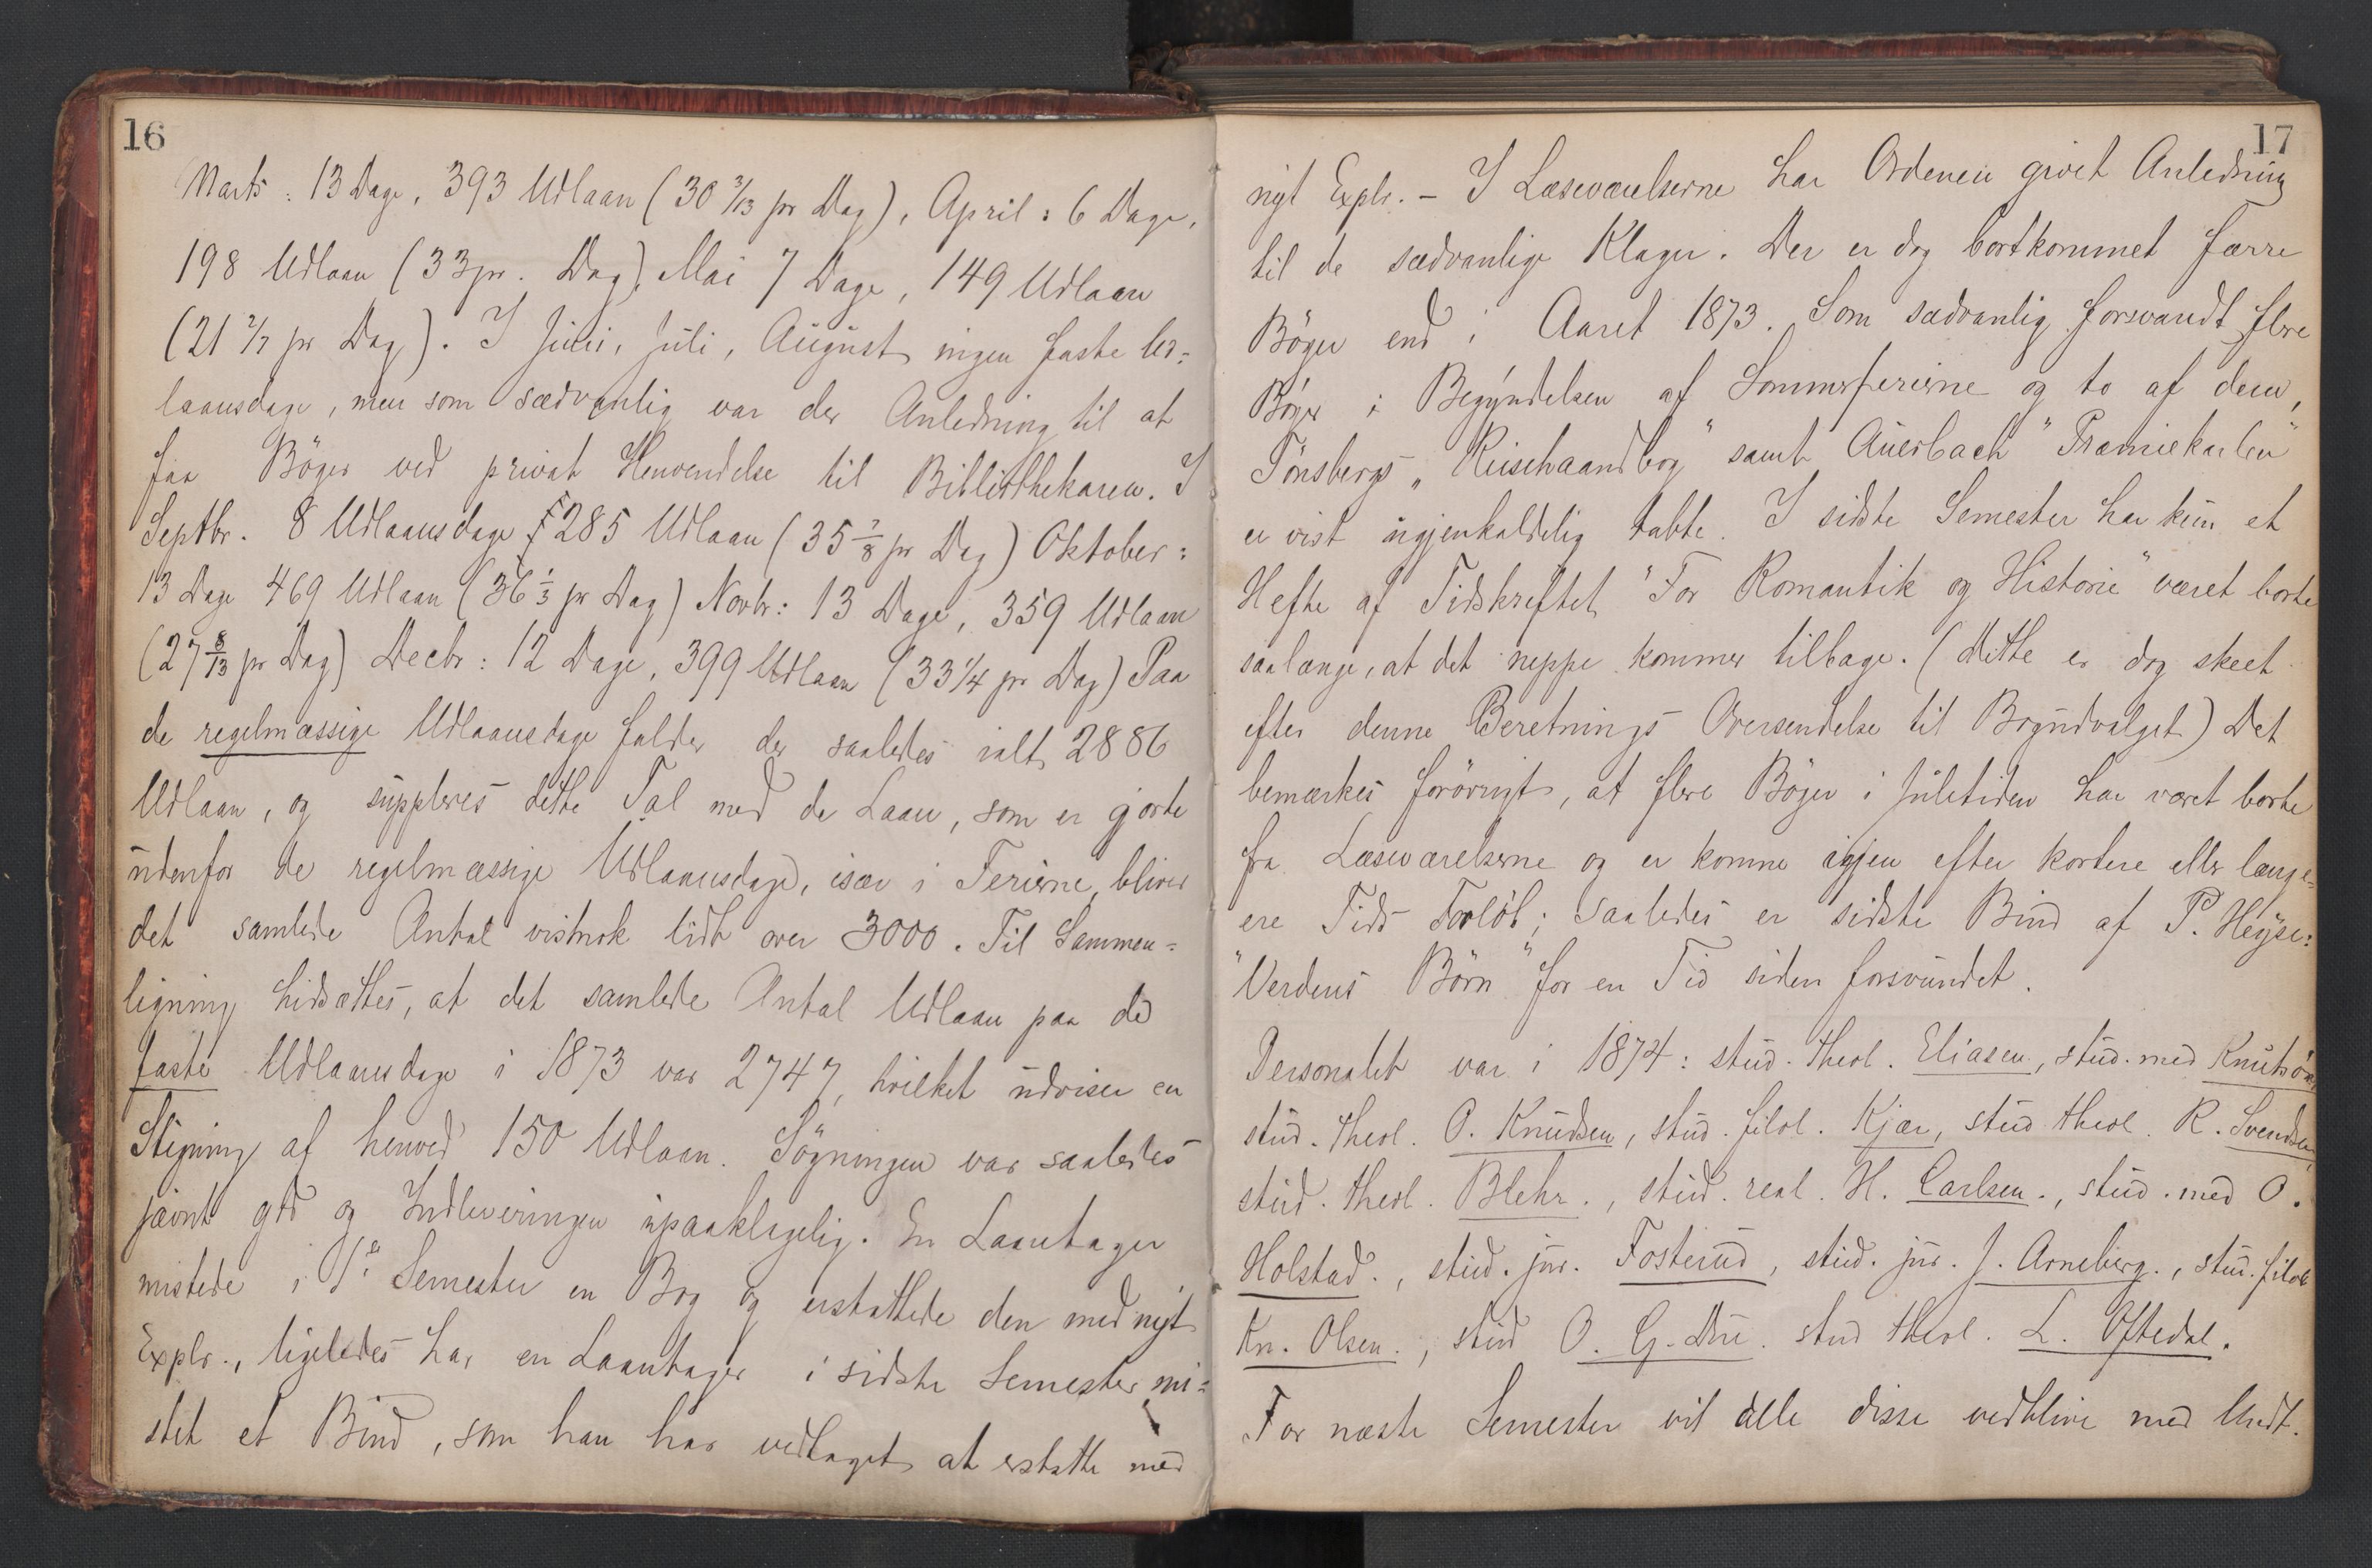 16
Marts: 13 Dage, 393 Udlaan (30 3/13 pr Dag), April: 6 Dage,
198 Udlaan (33 pr. Dag), Mai 7 Dage, 149 Udlaan
(21 2/7 pr Dag). I Juni, Juli, August ingen faste Ud=
laansdage, men som sædvanlig var der Anledning til at
faa Böger ved privat Henvendelse til Bibliothekaren. I
Septbr. 8 Udlaansdage, 285 Udlaan (35 7/8 pr Dag) Oktober:
13 Dage 469 Udlaan (36 1/3 pr Dag) Novbr: 13 Dage, 359 Udlaan
(27 8/13 pr Dag) Decbr: 12 Dage, 399 Udlaan (33 1/4 pr Dag) Paa
de regelmæssige Udlaansdage falder der saaledes ialt 2886
Udlaan, og suppleres dette Tal med de Laan, som er gjorte
udenfor de regelmæssige Udlaansdage, især i Ferierne, bliver
det samlede Antal vistnok lidt over 3000. Til Sammen=
ligning hidsættes, at det samlede Antal Udlaan paa de
faste Udlaansdage i 1873 var 2747, hvilket udviser en
Stigning af henved 150 Udlaan. Sögningen var saaledes
jævnt god og Indleveringen upaaklagelig. En Laantager
mistede i 1ste Semester en Bog og erstattede den med nyt
Explr., ligeledes har en Laantager i sidste Semester mi=
stet et Bind, som han har vedtaget at erstatte med
17
nyt Explr. - I Læseværelserne har Ordenen givet Anledning
til de sædvanlige Klager. Der er dog bortkommet færre
Böger end i Aaret 1873. Som sædvanlig forsvandt flere
Böger i Begyndelsen af Sommerferierne og to af dem,
Tönsbergs „Reisehaandbog" samt Auerbach "Præmiekarlen"
er vist ugjenkaldelig tabte. I sidste Semester har kun et
Hefte af Tidskriftet "For Romantik og Historie" været borte
saalænge, at det neppe kommer tilbage. (Dette er dog skeet
efter denne Beretnings Oversendelse til Bogudvalget) Det
bemærkes forövrigt, at flere Böger i Juletiden har været borte
fra Læseværelserne og er komne igjen efter kortere eller læng=
ere Tids Forlöb; saaledes er sidste Bind af P. Heyse:
"Verdens Börn" for en Tid siden forsvundet.
Personalet var i 1874: stud. theol. Eliasen, stud. med Knutsön,
stud. theol. O. Knudsen, stud. filol. Kjær, stud theol. R. Svendsen,
stud. theol. Blehr., stud. real. H. Carlsen., stud. med O.
Holstad., stud. jur. Fosterud, stud. jur. J. Arneberg., stu. filol
Kn. Olsen., stud O. G. Due. stud theol. L. Oftedal.
For næste Semester vil alle disse vedblive med Undt.